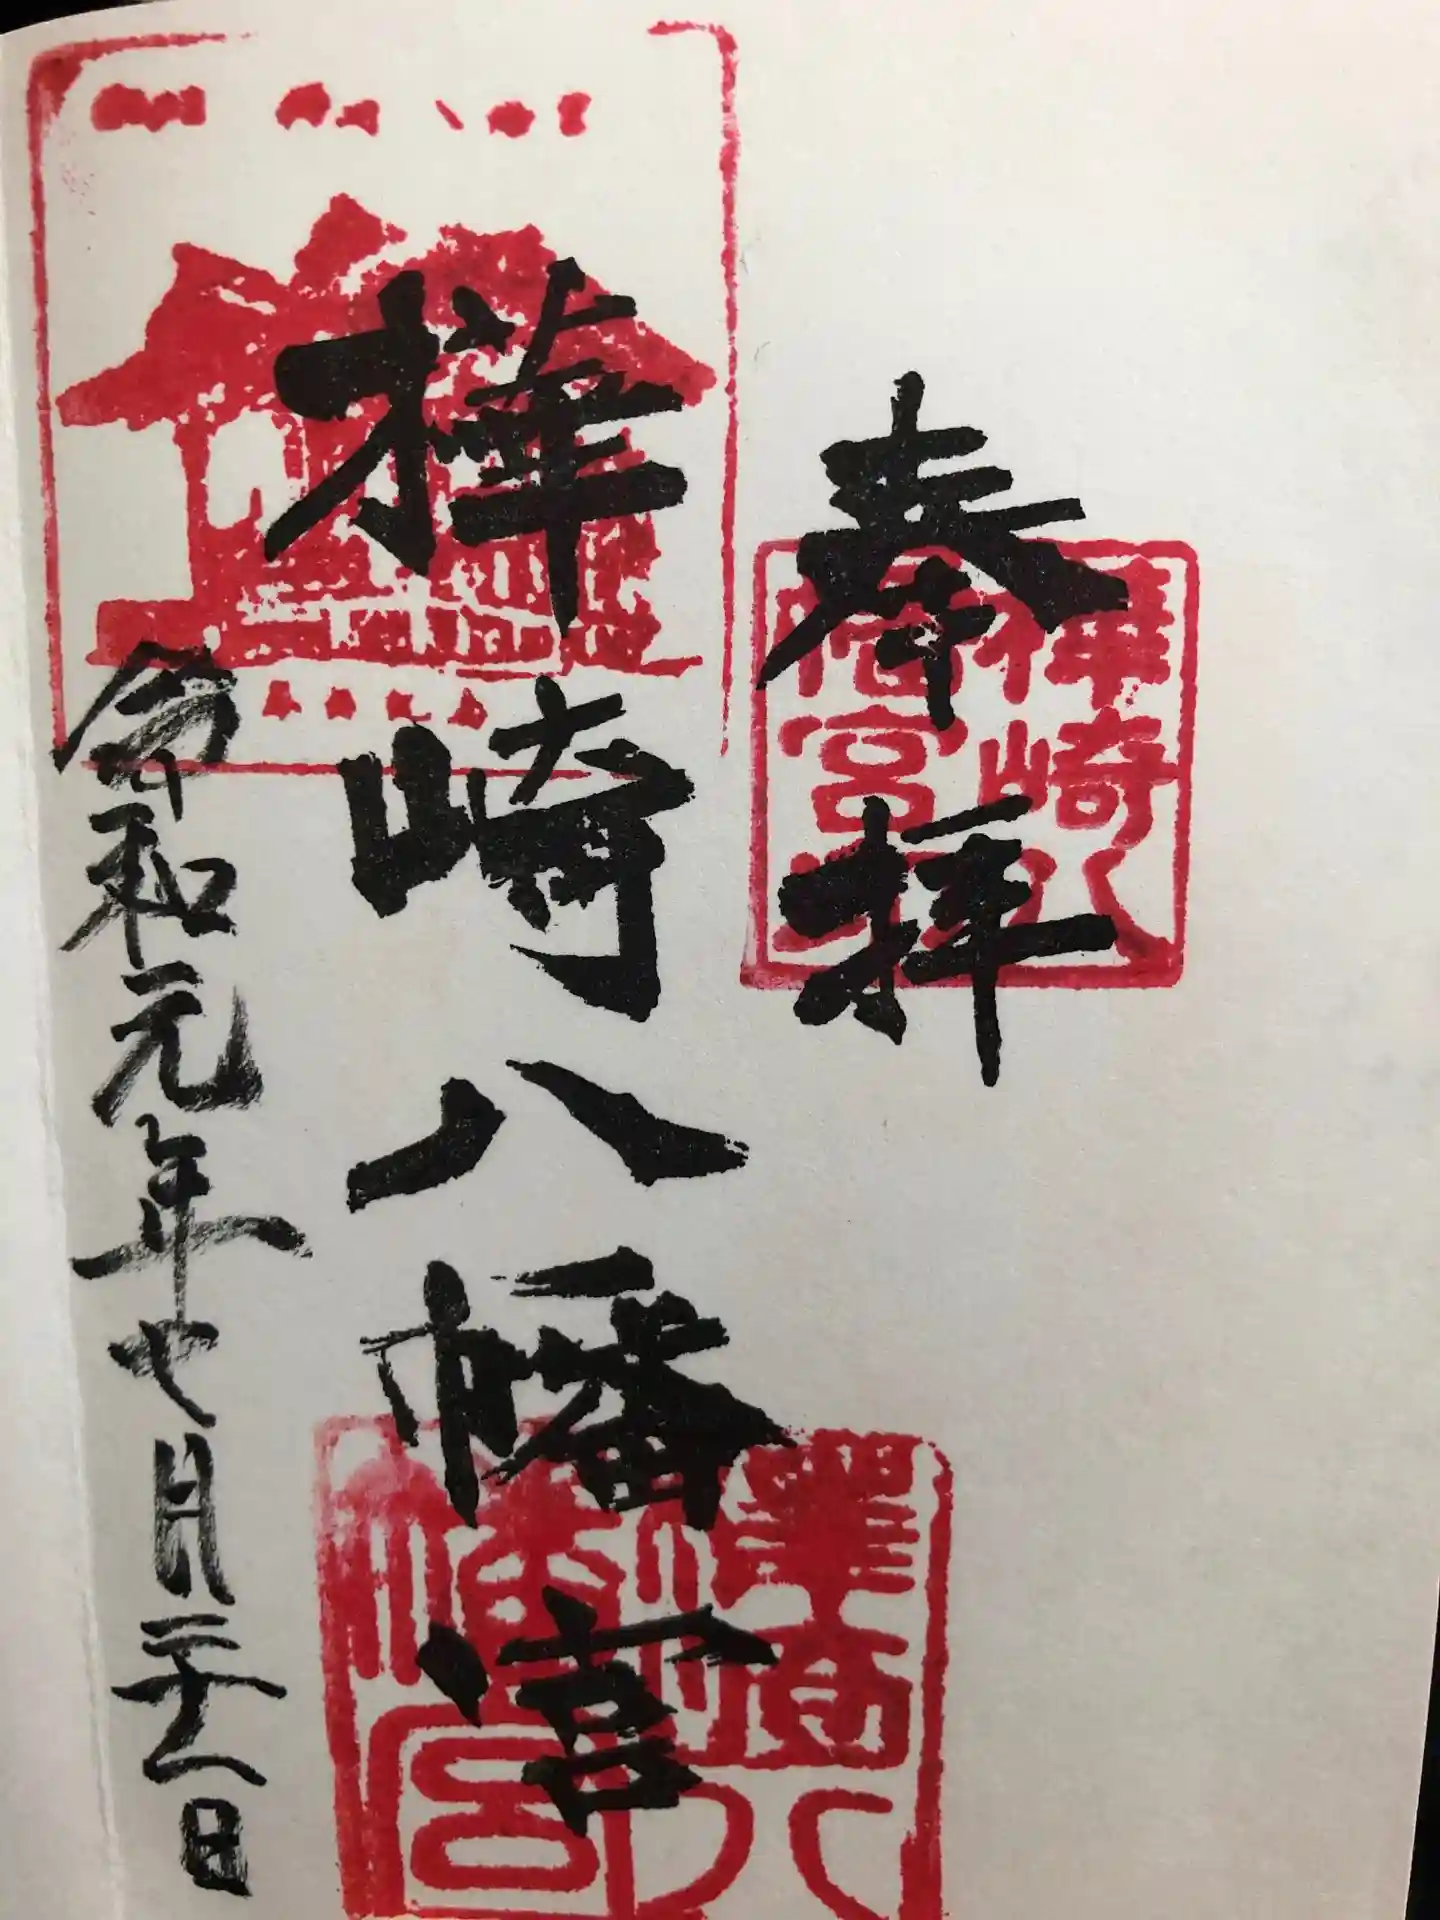 奉拝
樺崎八幡宮
令和元年七月二十一日
樺崎八
幡宮
樺崎八
幡宮